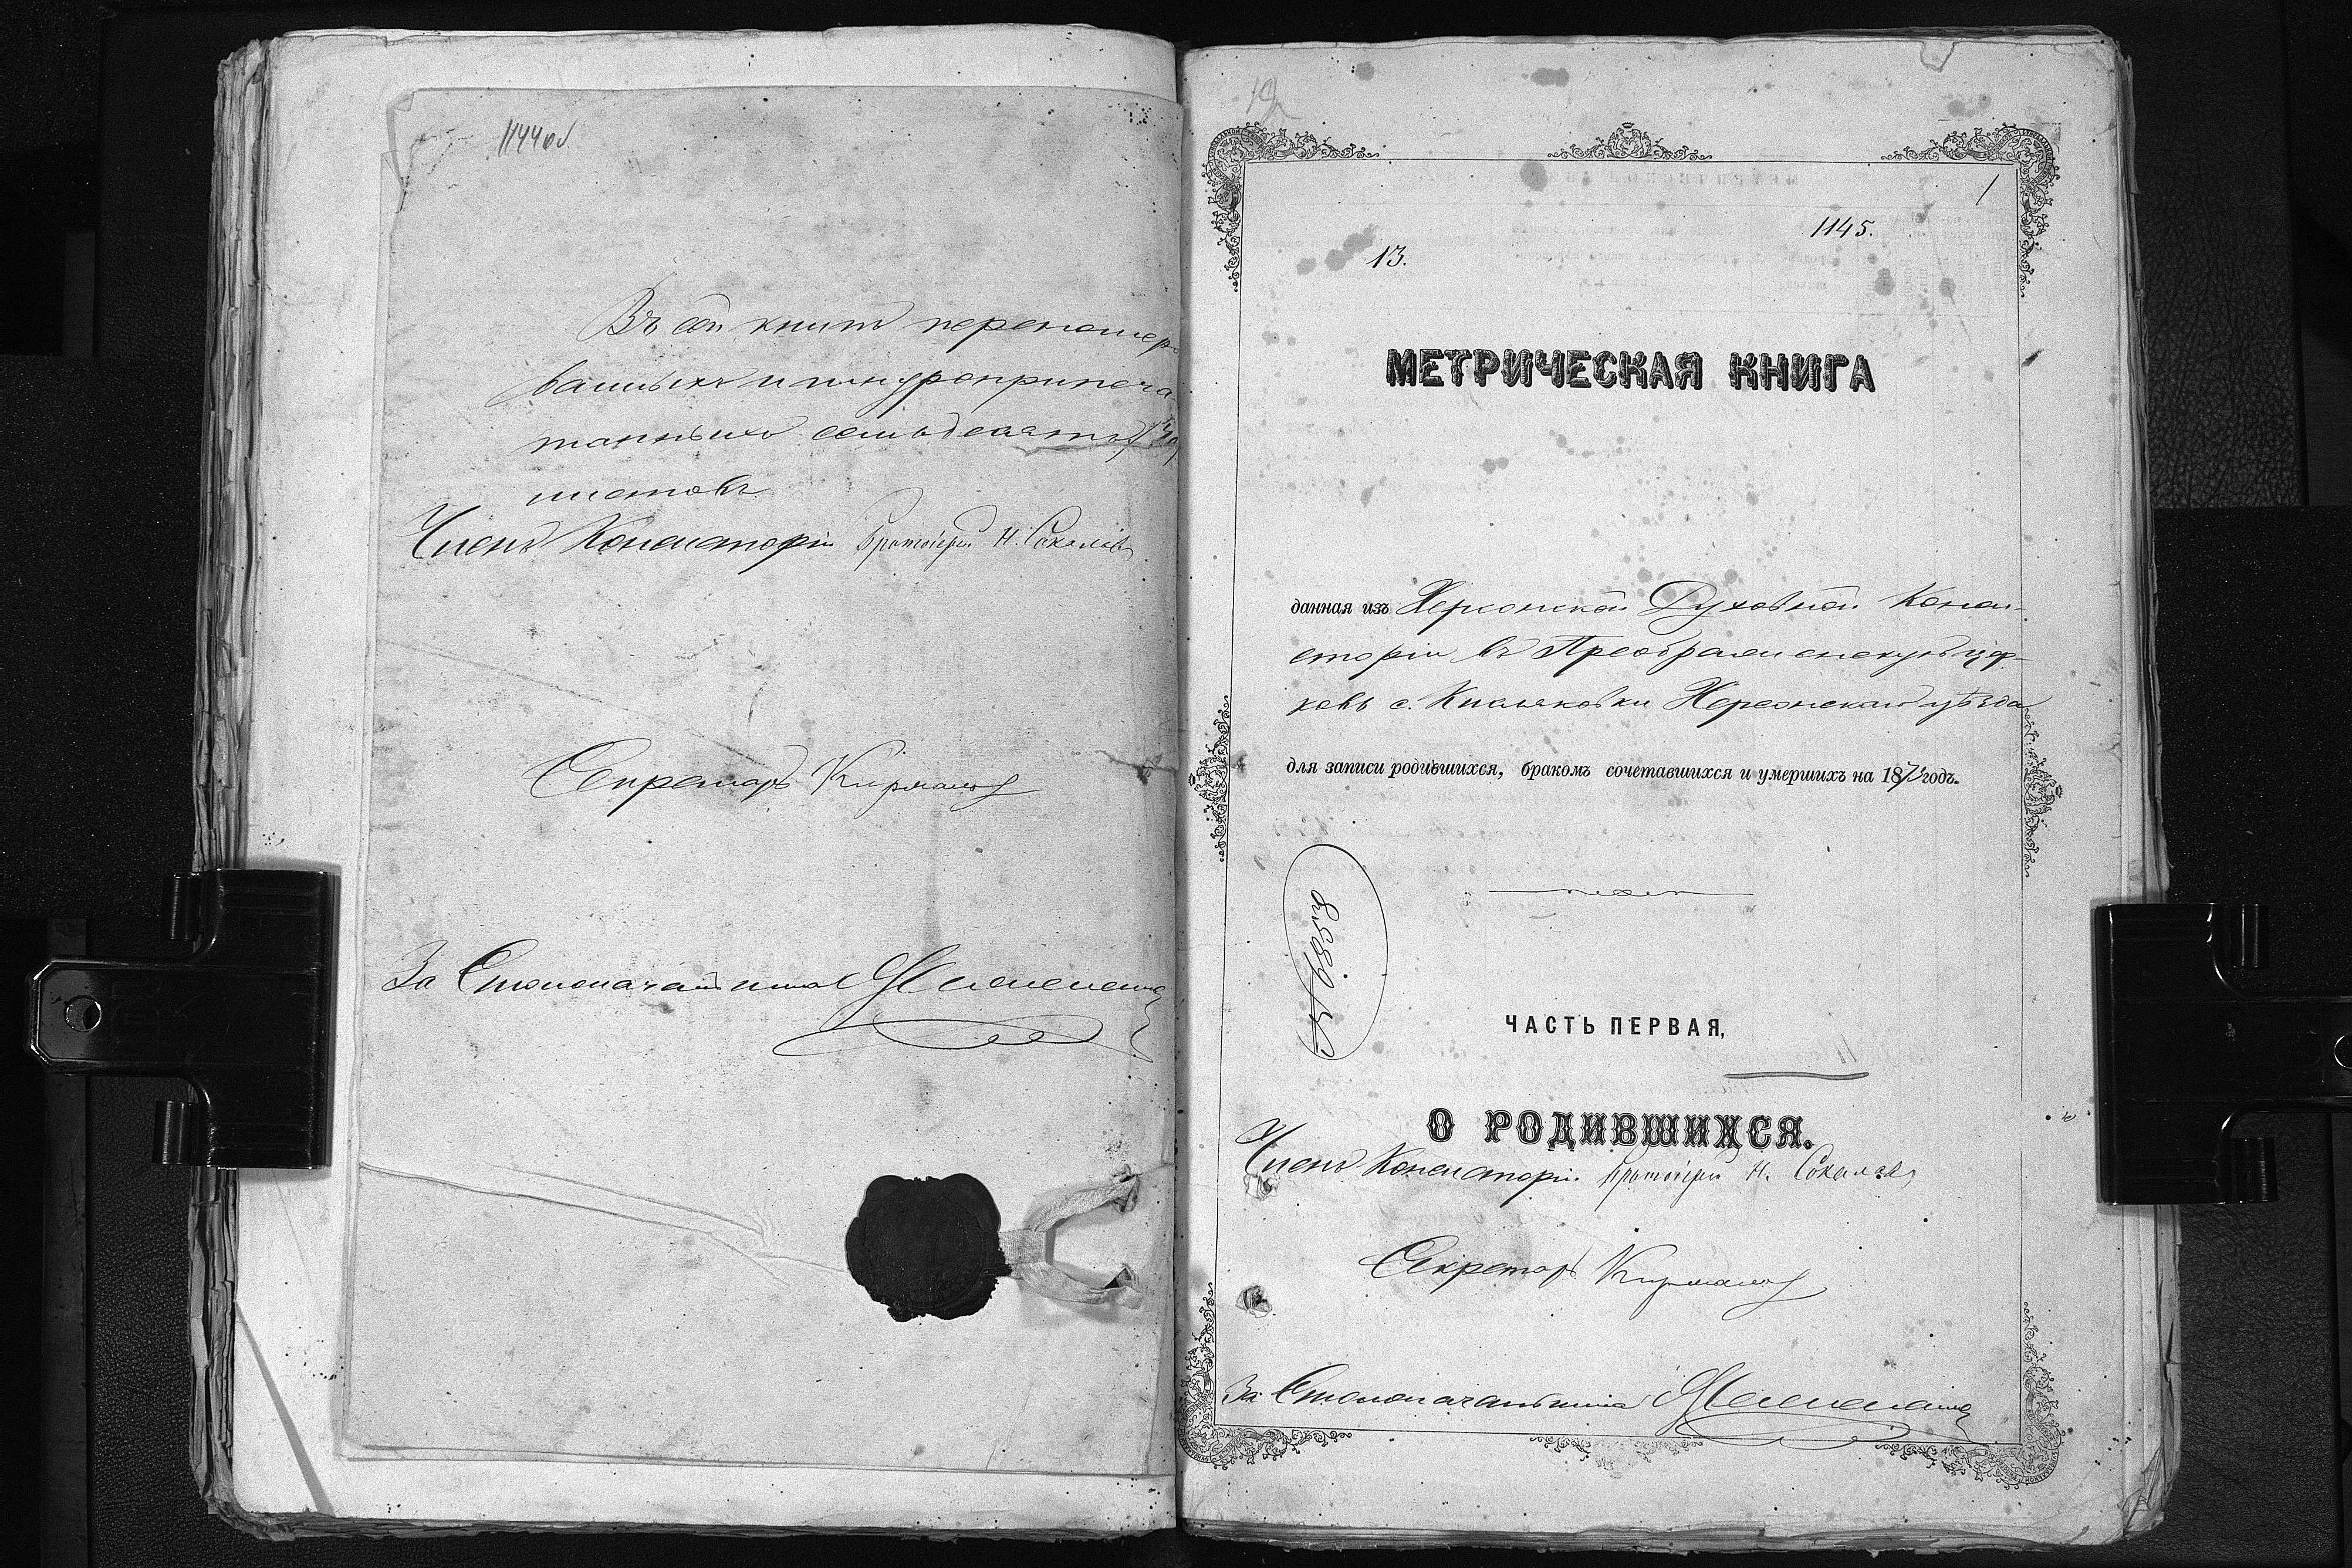 1144об
Въ сей книгѣ перенумеро
ванныхъ и шнуроприпеча
танныхъ семьдесятъ (70)
листовъ
Членъ Консисторіи Протоіерей Н. Соколовъ
Секретарь
За Столоначальника
1
1145.
13.
МЕТРИЧЕСКАЯ КНИГА
данная изъ Херсонской Духовной Конси-
сторіи въ Преображенскую цер-
ковь с. Кисляковки Херсонскаго уѣзда
для записи родившихся, бракомъ сочетавшихся и умершихъ на 18 годъ.
ЧАСТЬ ПЕРВАЯ,
О РОДИВШИХСЯ.
Членъ Консисторіи Протоіерей Н. Соколовъ
Секретарь
За Столоначальника